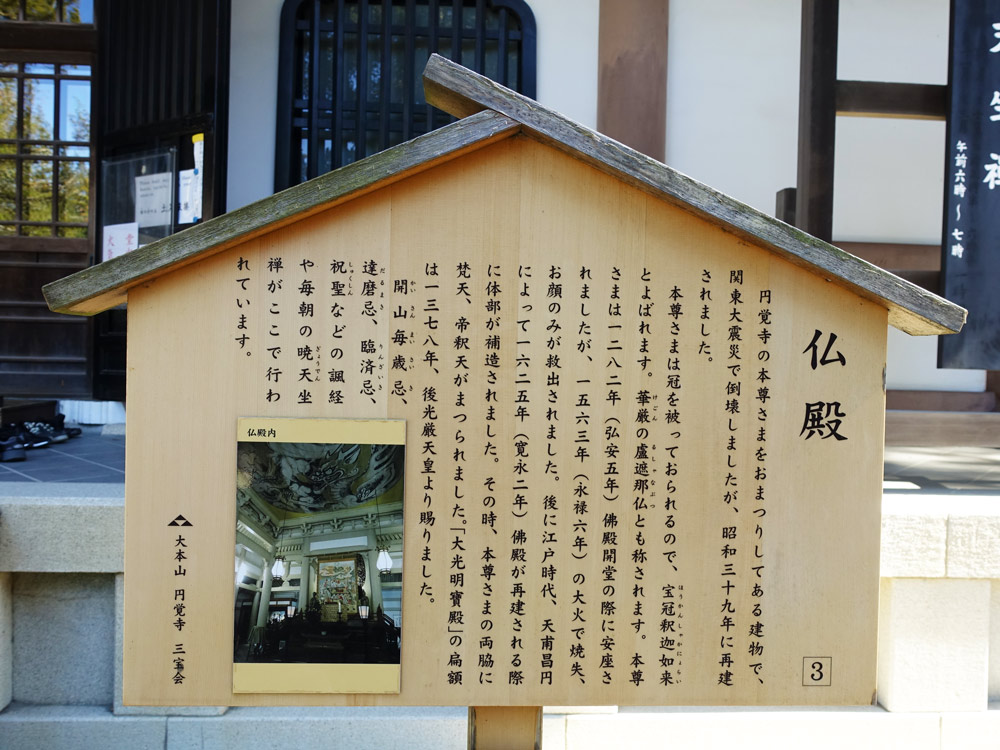 仏殿
円覚寺の本尊さまをおまつりしてある建物で、
関東大震災で倒壊しましたが、昭和三十九年に再建
されました。
本尊さまは冠を被っておられるので、宝冠釈迦如来
ほうかんしゃかにょらい
とよばれます。華厳の盧遮那仏とも称されます。本尊
けごん
るしゃなぶつ
さまは一二八二年（弘安五年）佛殿開堂の際に安座さ
れましたが、一五六三年（永禄六年）の大火で焼失、
お顔のみが救出されました。後に江戸時代、天甫昌円
によって一六二五年（寛永二年）佛殿が再建される際
に体部が補造されました。その時、本尊さまの両脇に
梵天、帝釈天がまつられました。「大光明寶殿」の扁額
は一三七八年、後光厳天皇より賜りました。
開山毎歳忌、
かいさんまいさいき
達磨忌、臨済忌、
だるまき
りんざいき
祝聖などの諷経
しゅくしん
や毎朝の暁天坐
ぎょうてん
禅がここで行わ
れています。
仏殿内
大本山 円覚寺 三宝会
3
午前六時～七時